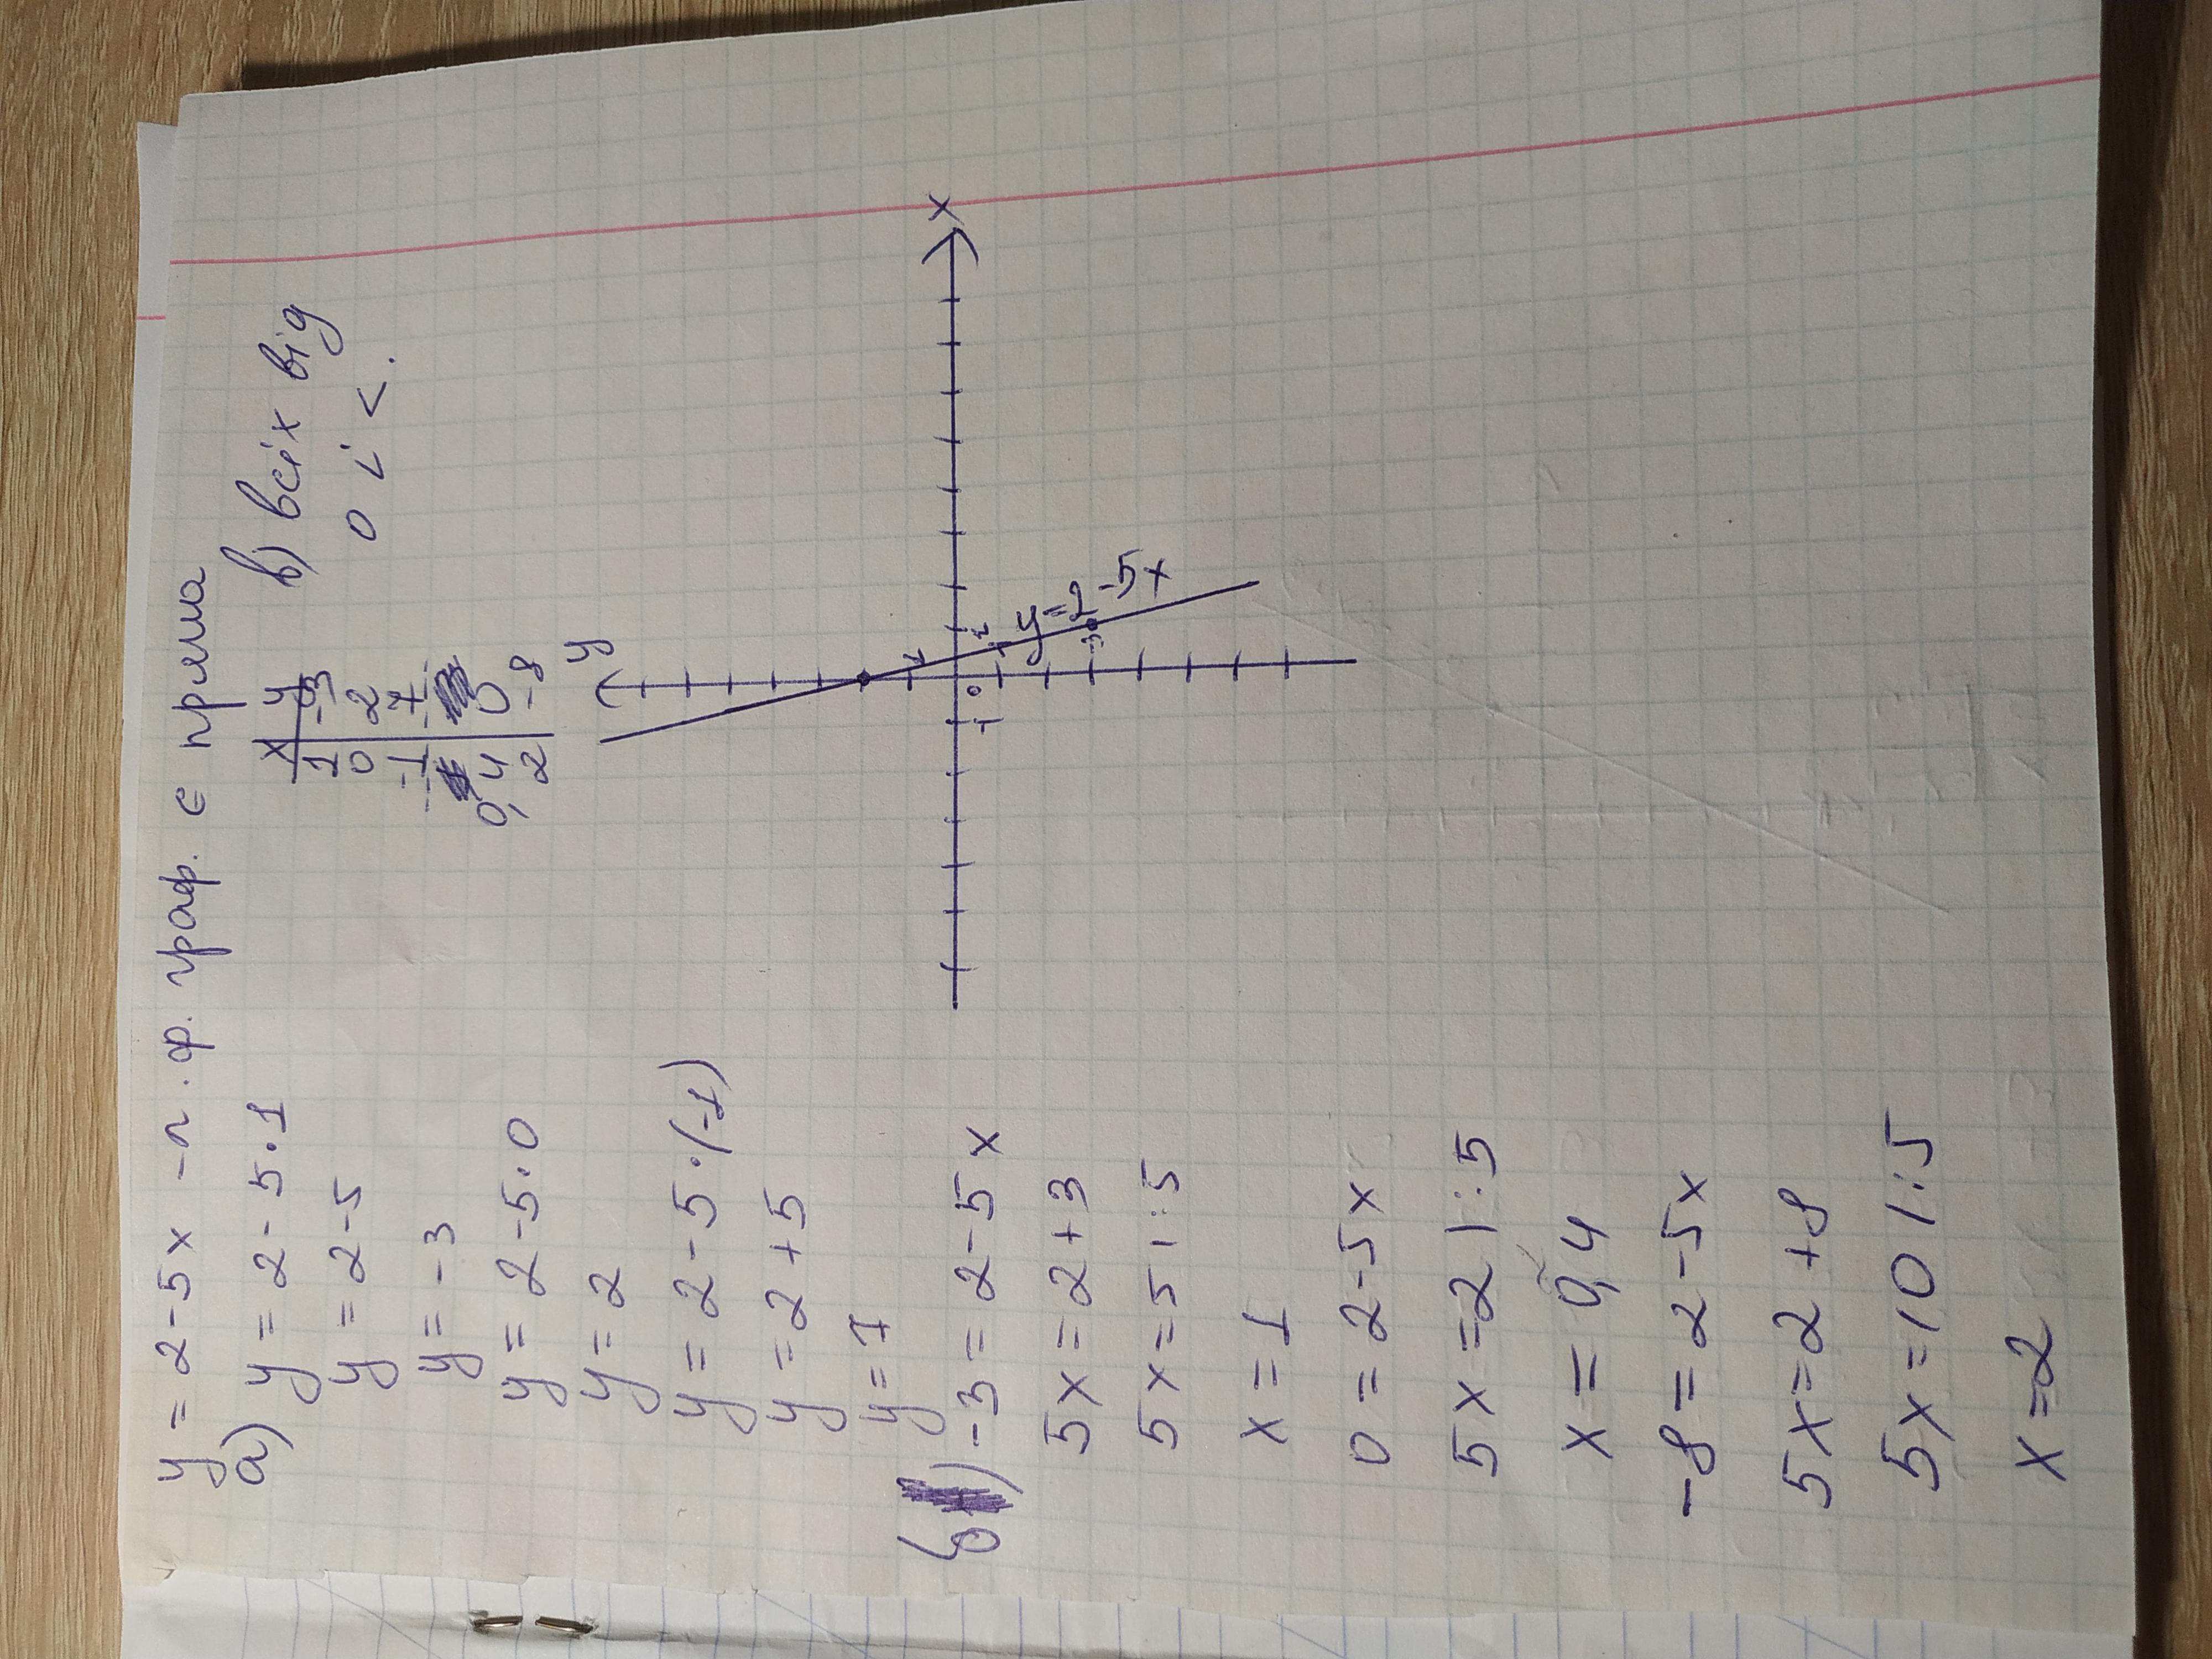 y = 2-5x -л.ф. граф. є пряма
а) y = 2-5·1
y = 2-5
y = -3
y = 2-5·0
y = 2
y = 2-5·(-1)
y = 2+5
y = 7
б) -3 = 2-5x
5x = 2+3
5x = 5 |:5
x = 1
0 = 2-5x
5x = 2 |:5
x = 0,4
-8 = 2-5x
5x = 2+8
5x = 10 |:5
x = 2
x y
1 -3
0 2
-1 7
0,4 0
2 -8
в) всіх від
0 і <.
y
x
-1 0 1
-3
y=2-5x